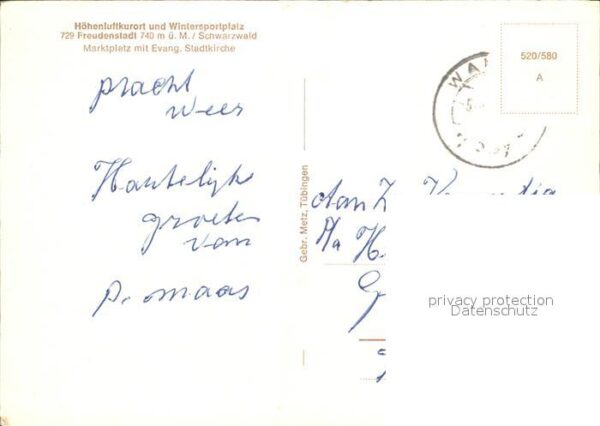 Höhenluftkurort und Wintersportplatz
729 Freudenstadt 740 m ü. M. / Schwarzwald
Marktplatz mit Evang. Stadtkirche
pracht
weer
Hartelijk
groeten
van
P. Maas
Gebr. Metz, Tübingen
520/580
A
Aan
privacy protection
Datenschutz